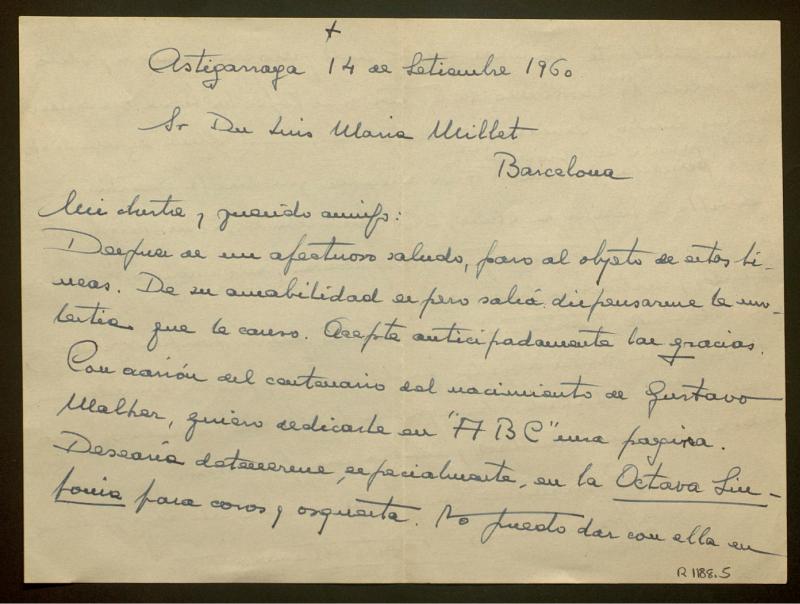 +
Astigarraga 14 de Setiembre 1960
Sr Dn Luis Maria Millet
Barcelona
Mi ilustre y querido amigo:
Despues de un afectuoso saludo, paso al objeto de estas li-
neas. De su amabilidad espero sabrá dispensarme la mo-
lestia que le causo. Acepte anticipadamente las gracias.
Con ocasión del centenario del nacimiento de Gustavo
Malher, quiero dedicarle en "A B C" una pagina.
Desearía detenerme, especialmente, en la Octava Sin-
fonia para coros y orquesta. No puedo dar con ella en
R 1188.5